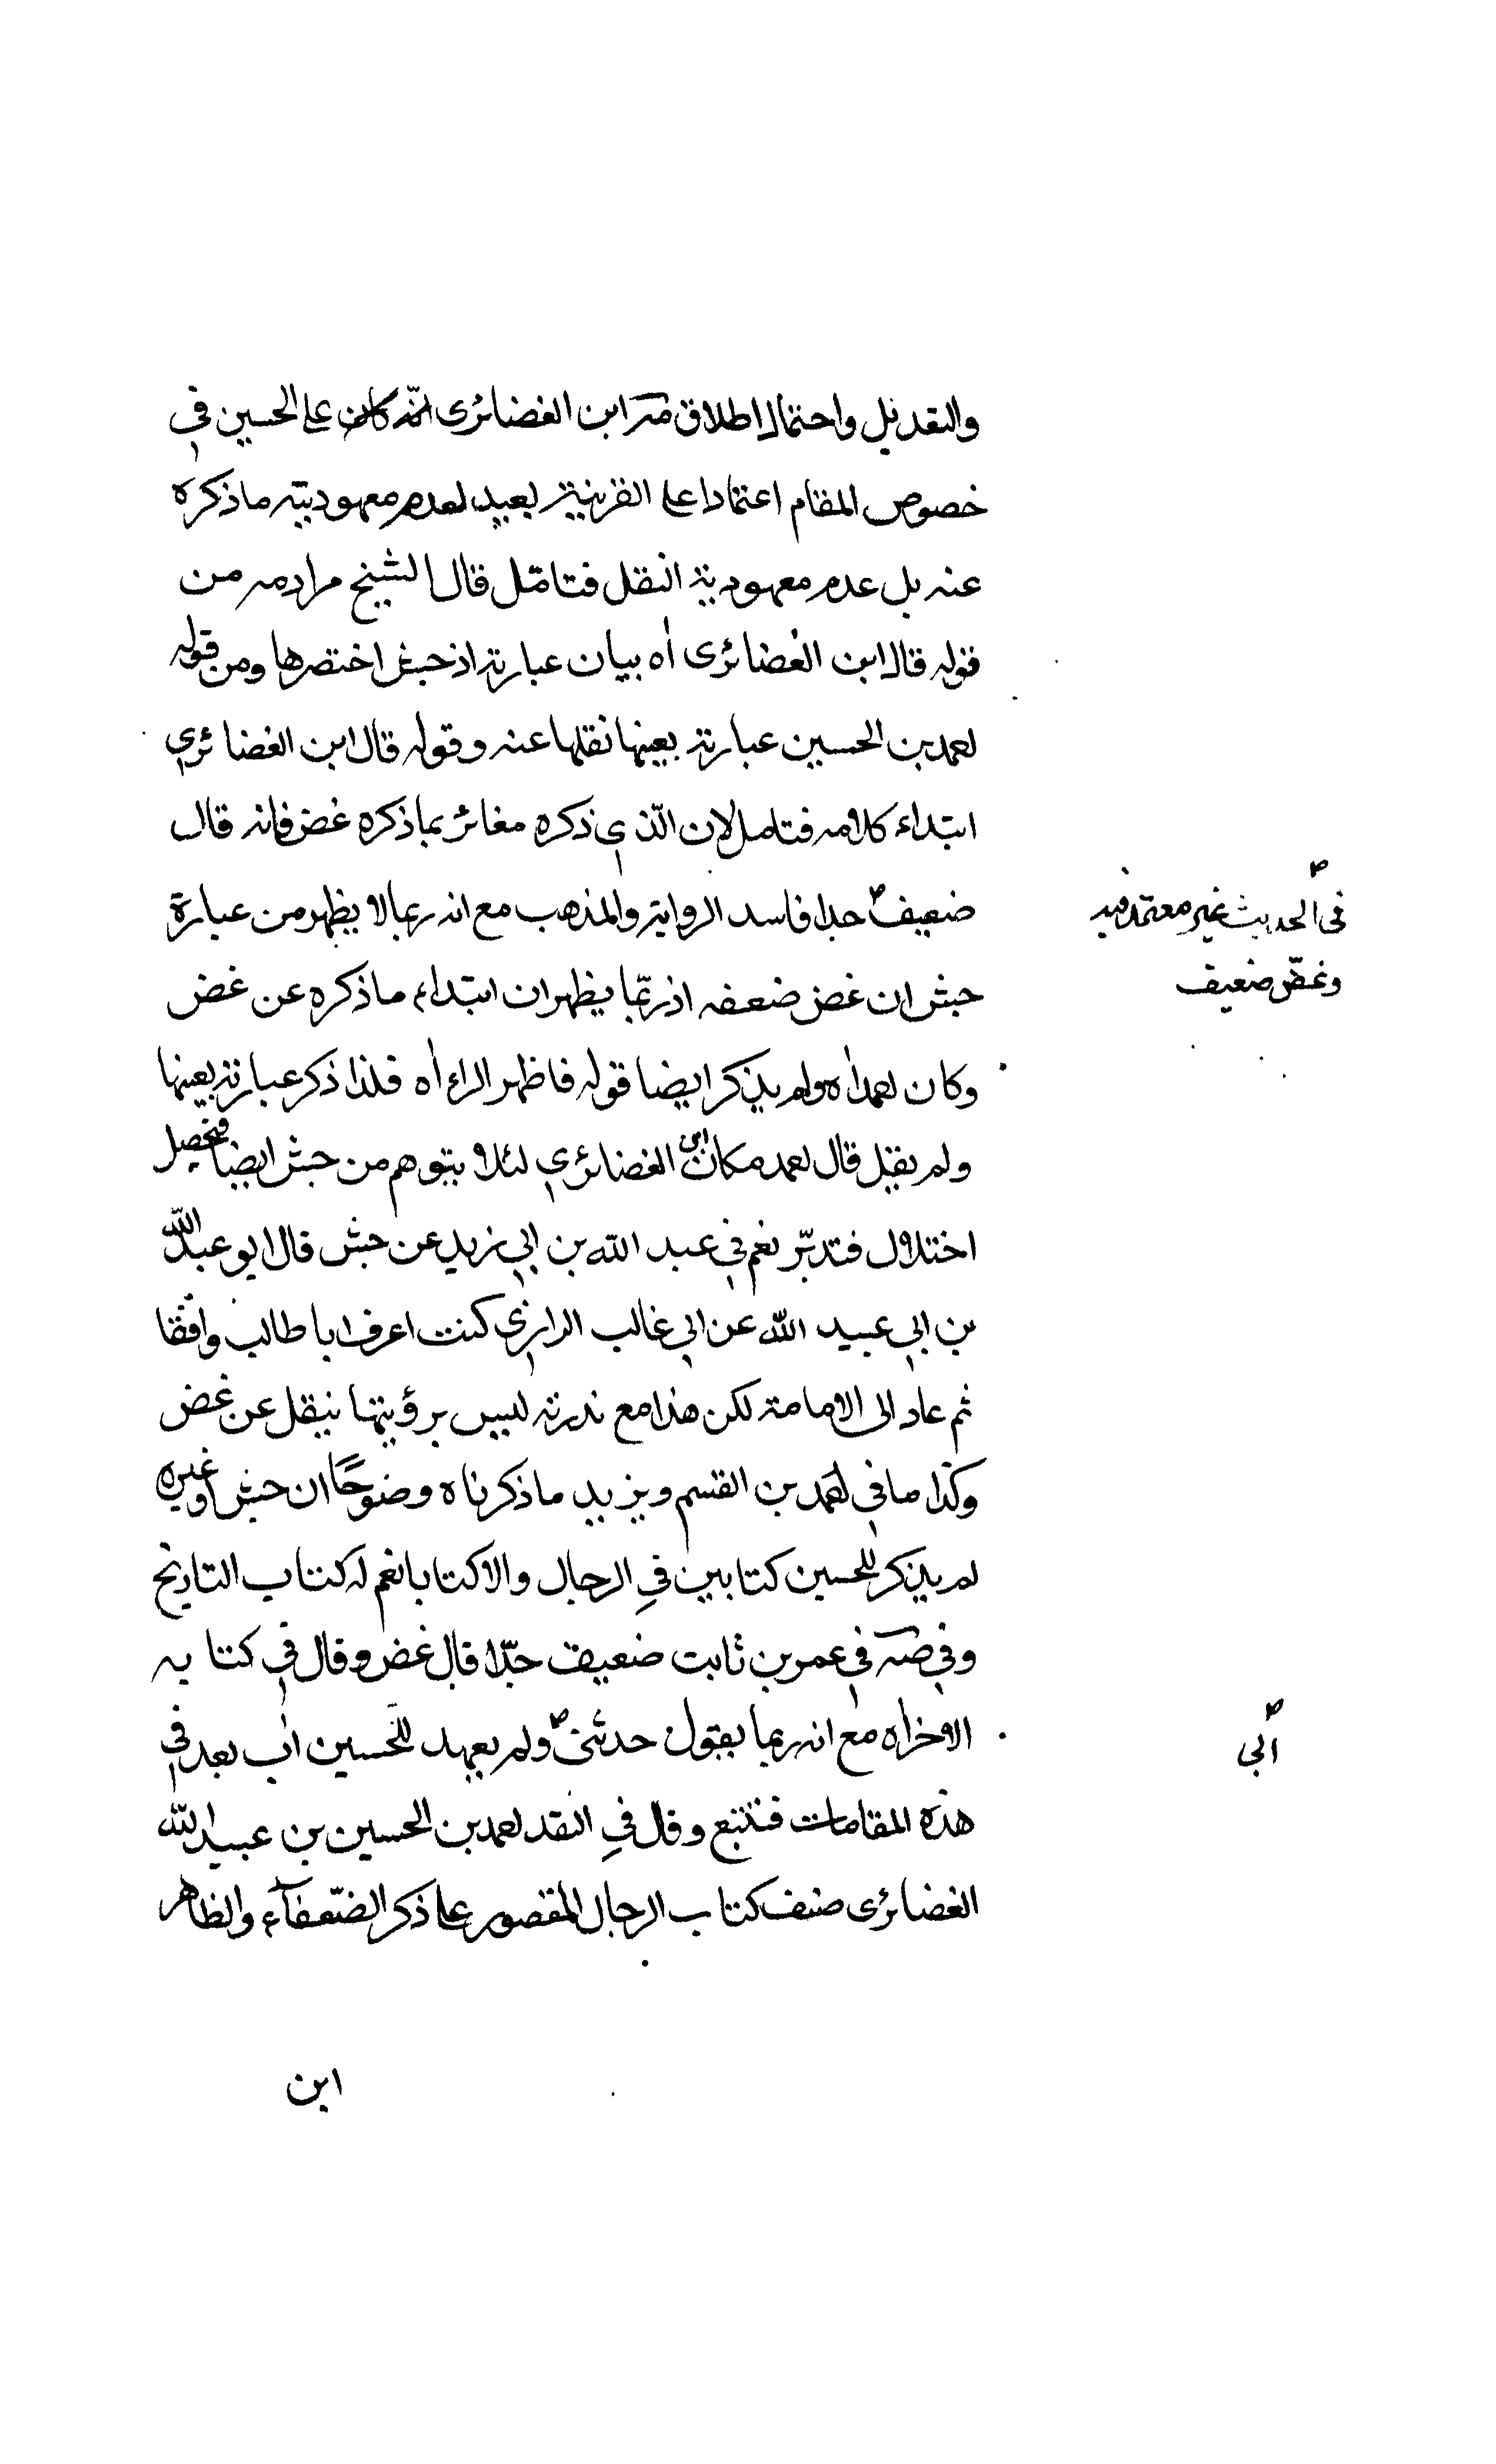 والتعديل واحتمال اطلاق مة ابن الغضائرى انه كان على الحسين في
خصوص المقام اعتمادا على القرينة بعيد لعدم معهودية ما ذكره
عنه بل عدم معهودية النقل فتامّل قال الشيخ مراد مه من
قوله قال ابن الغضائرى اه بيان عبارته اذ جش اختصرها ومن قوله
احمد بن الحسين عبارته بعينها نقلها عنه وقوله قال ابن الغضائري
ابتداء كلامه فتامل لان الّذي ذكره مغائر بما ذكره غض فانه قال
ضعيف جدا فاسد الرواية والمذهب مع انه ربما لا يظهر من عبارة
في الحديث غير معتمد فيه
وغض ضعيف
جش ان غض ضعفه اذ ربّما يظهر ان ابتداء ما ذكره عن غض
وكان احمد اه ولم يذكر ايضا قوله فاظهر البراءة اه فلذا ذكر عبارته بعينها
ولم يقل قال احمد مكان ابن الغضائري لئلا يتوهم من جش ايضا فيحصل
اختلال فتدبّر نعم في عبد الله بن ابي زيد عن جش قال ابو عبد الله
بن ابي عبيد الله عن ابي غالب الرازي كنت اعرف ابا طالب واقفا
ثم عاد الى الامامة لكن هذا مع ندرته ليس برؤيتها ينقل عن غض
وكذا ما في احمد بن القسم ويزيد ما ذكرناه وضوحًا ان جش وغيره
لم يذكر للحسين كتابين في الرجال والا كتابا نعم له كتاب التاريخ
وفي صه في عمر بن ثابت ضعيف جدّا قال غض وقال في كتابه
الاخر اه مع انه ربما يقول حدثنى ولم يعهد للحسين اب بعد في
ابى
هذه المقامات فتتبع وقال في النقد احمد بن الحسين بن عبيد الله
الغضائرى صنف كتاب الرجال المقصور على ذكر الضّعفآء والظاهر
ابن